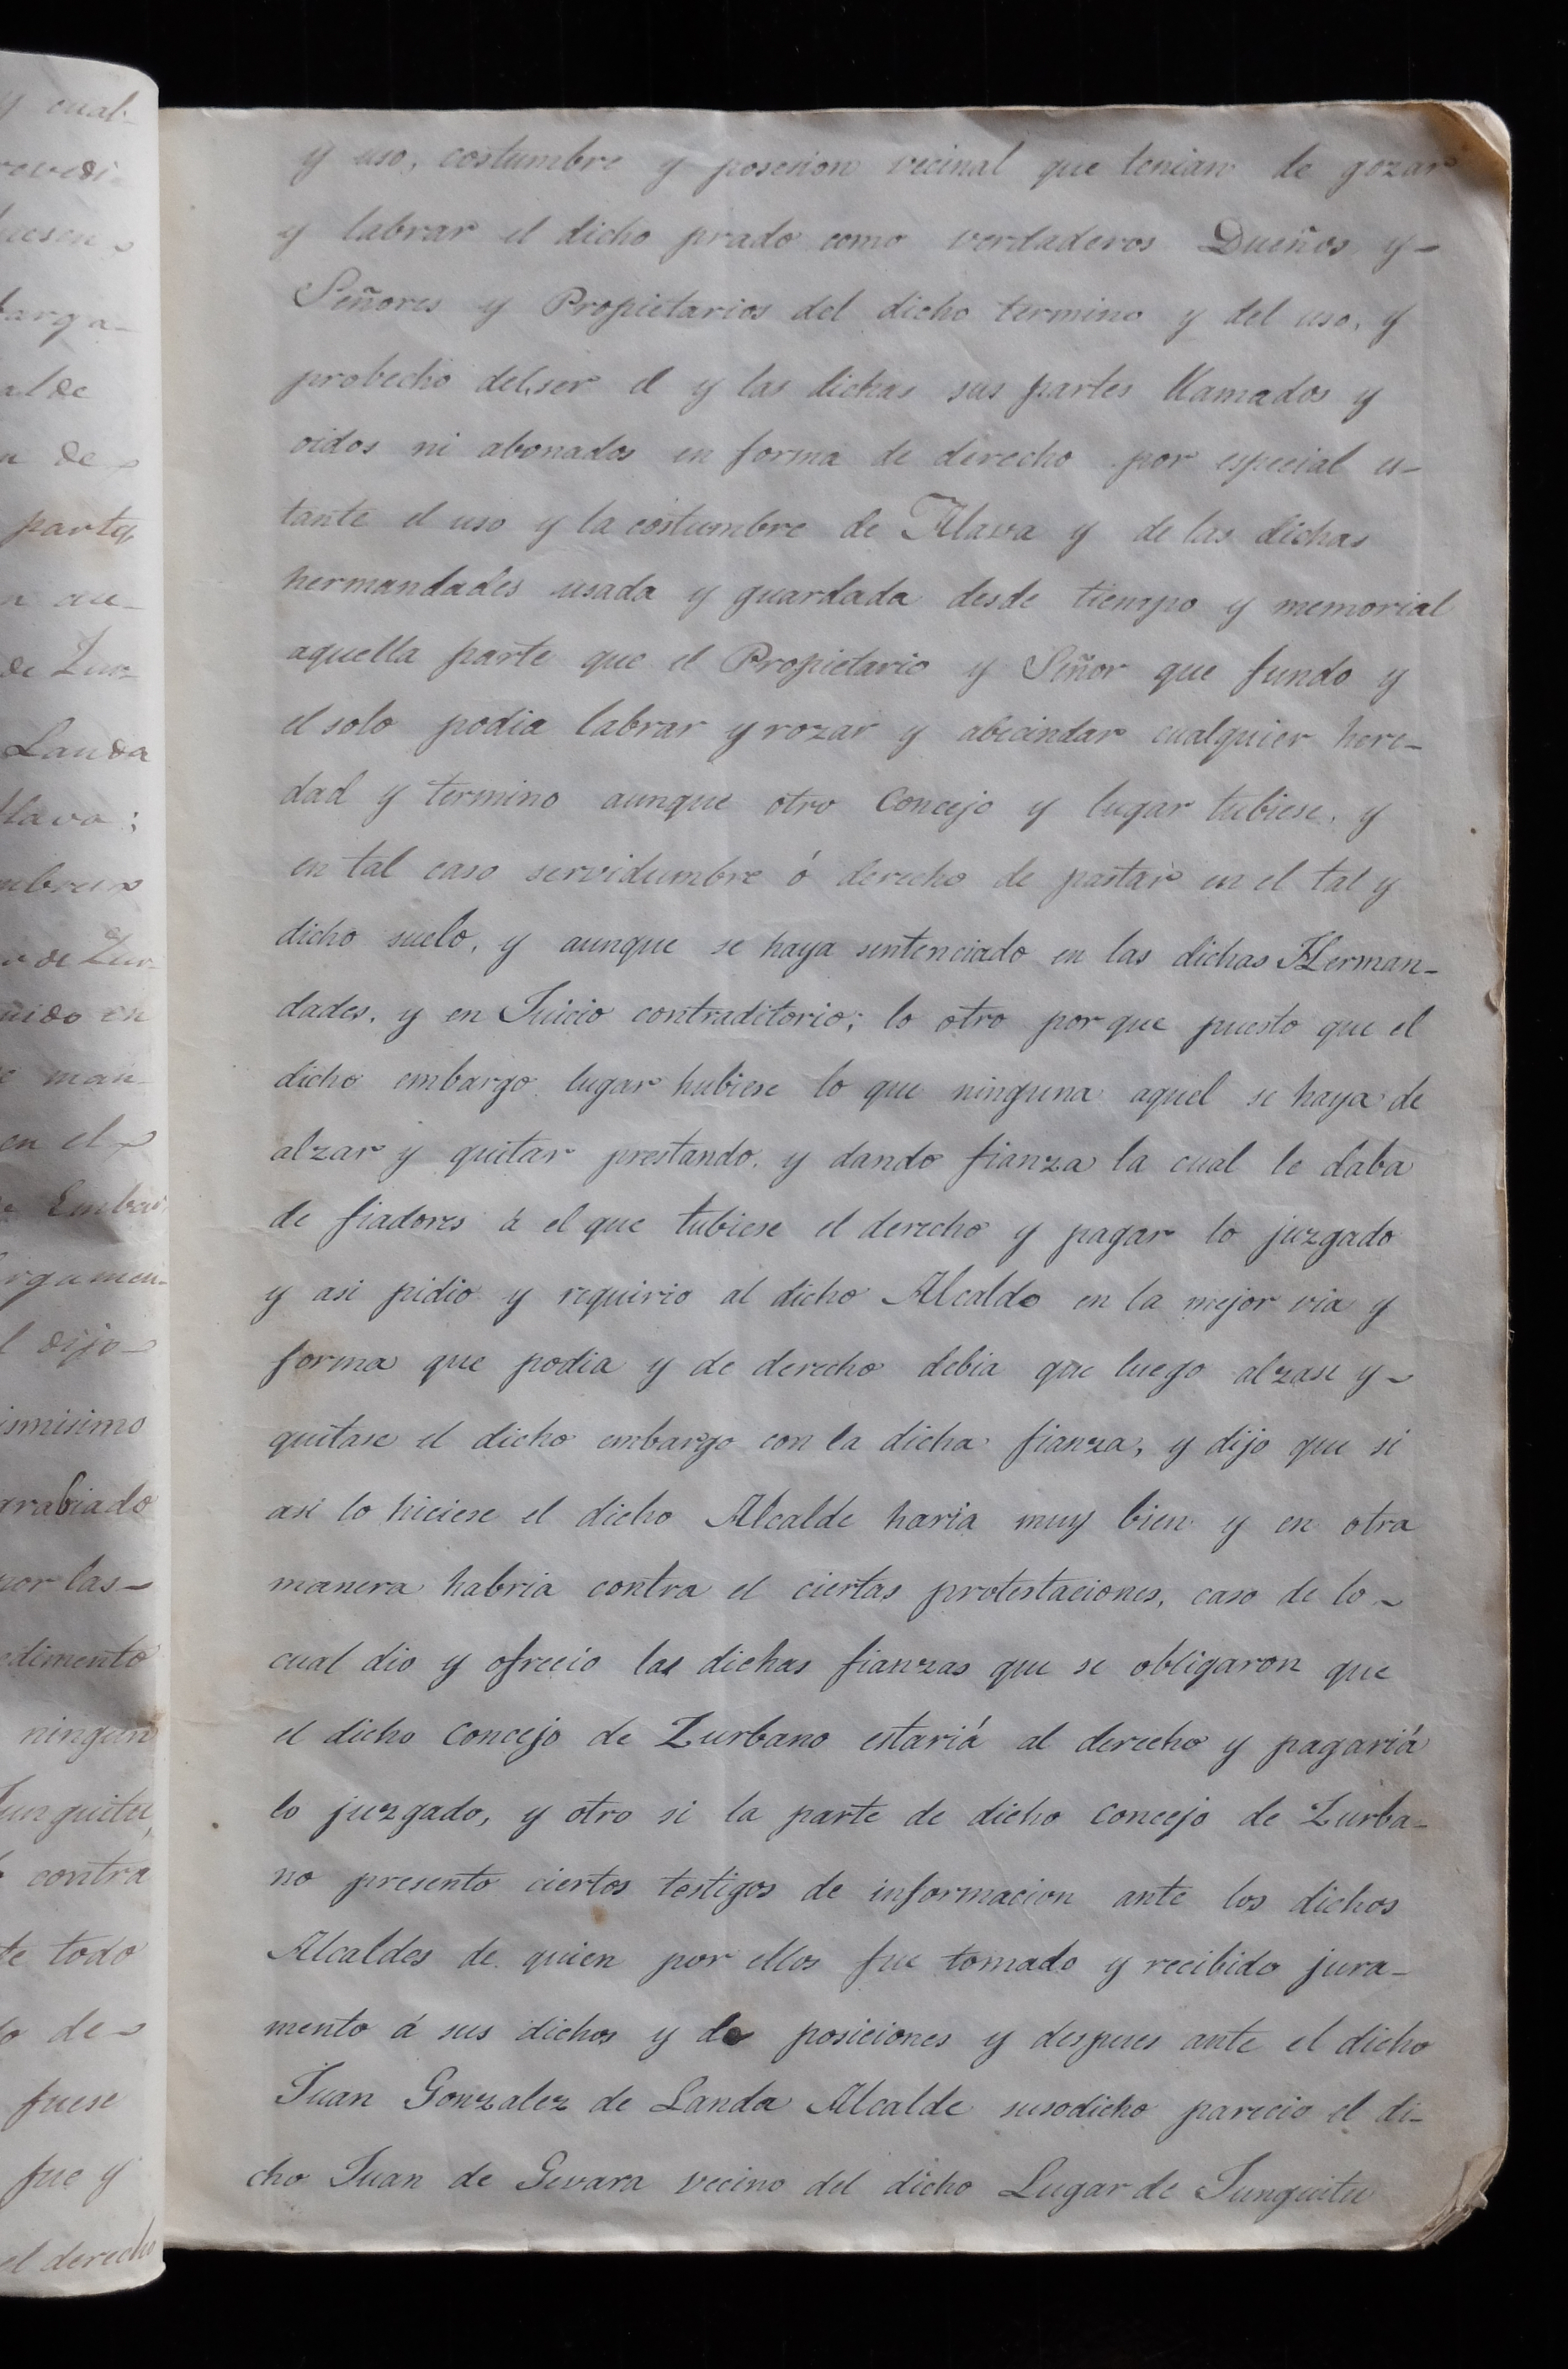 y uso, costumbre y posesion vecinal que tenian de gozar
y labrar el dicho prado como verdaderos Dueños y
Señores y Propietarios del dicho termino y del uso, y
probecho del ser el y las dichas sus partes llamados y
oidos ni abonados en forma de derecho por especial es-
tante el uso y la costumbre de Alava y de las dichas
hermandades usada y guardada desde tiempo y memorial
aquella parte que el Propietario y Señor que fundo y
el solo podia labrar y rozar y abecindar cualquier here-
dad y termino aunque otro Concejo y lugar tubiese, y
en tal caso servidumbre ó derecho de pastar en el tal y
dicho suelo, y aunque se haya sentenciado en las dichas Herman-
dades, y en Juicio contraditorio; lo otro por que puesto que el
dicho embargo lugar hubiese lo que ninguna aquel se haya de
alzar y quitar prestando, y dando fianza la cual le daba
de fiadores á el que tubiese el derecho y pagar lo juzgado
y asi pidio y requirio al dicho Alcalde en la mejor via y
forma que podia y de derecho debia que luego alzase y
quitase el dicho embargo con la dicha fianza, y dijo que si
asi lo hiciese el dicho Alcalde haria muy bien y en otra
manera habria contra el ciertas protestaciones, caso de lo
cual dio y ofrecio las dichas fianzas que se obligaron que
el dicho Concejo de Zurbano estariá al derecho y pagariá
lo juzgado, y otro si la parte de dicho concejo de Zurba-
no presento ciertos testigos de informacion ante los dichos
Alcaldes de quien por ellos fue tomado y recibido jura-
mento á sus dichos y de posiciones y despues ante el dicho
Juan Gonzalez de Landa Alcalde susodicho parecio el di-
cho Juan de Gevara vecino del dicho Lugar de Junguitu